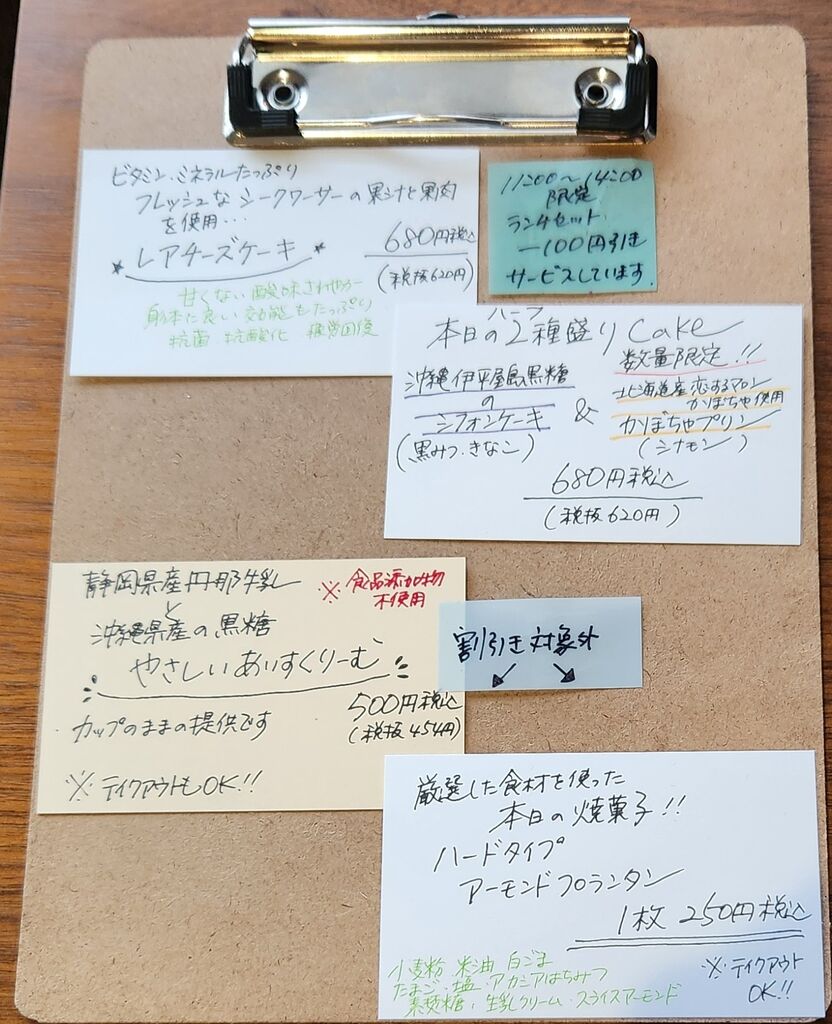 ビタミン・ミネラルたっぷり
フレッシュなシークワーサーの果汁と果肉
を使用…
レアチーズケーキ
680円税込
(税抜620円)
甘くない酸味さわやか
身体に良い効能もたっぷり
抗菌 抗酸化 疲労回復
11:00〜14:00
限定
ランチセット
-100円引き
サービスしています。
ハーフ
本日の2種盛りCake
数量限定!!
沖縄伊平屋島黒糖
の
シフォンケーキ
(黒みつ・きなこ)
&
北海道産恋するマロン
かぼちゃ使用
かぼちゃプリン
(シナモン)
680円税込
(税抜620円)
静岡県産丹那牛乳
と
沖縄県産の黒糖
やさしいあいすくりーむ
※食品添加物
不使用
500円税込
(税抜454円)
カップのままの提供です
※テイクアウトもOK!!
割引き対象外
↙ ↘
厳選した食材を使った
本日の焼菓子!!
ハードタイプ
アーモンドフロランタン
1枚 250円税込
小麦粉 米油 白ごま
たまご・塩・アカシアはちみつ
素焚糖・生乳クリーム・スライスアーモンド
※テイクアウト
OK!!